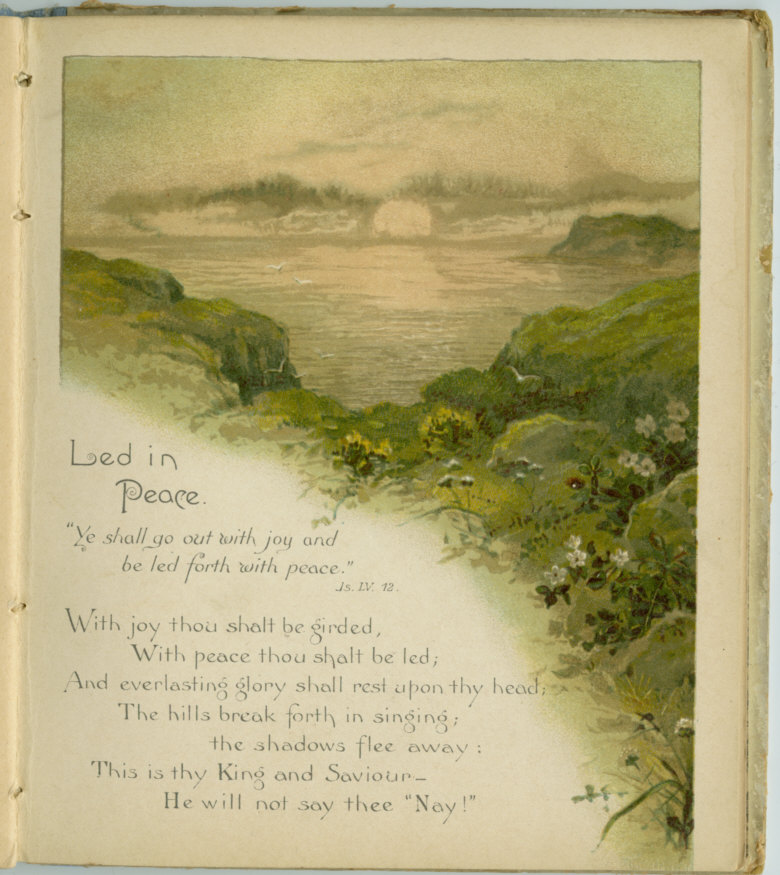 Led in
Peace.
"Ye shall go out with joy and
be led forth with peace."
Is. LV. 12.
With joy thou shalt be girded,
With peace thou shalt be led;
And everlasting glory shall rest upon thy head;
The hills break forth in singing;
the shadows flee away:
This is thy King and Saviour—
He will not say thee "Nay!"